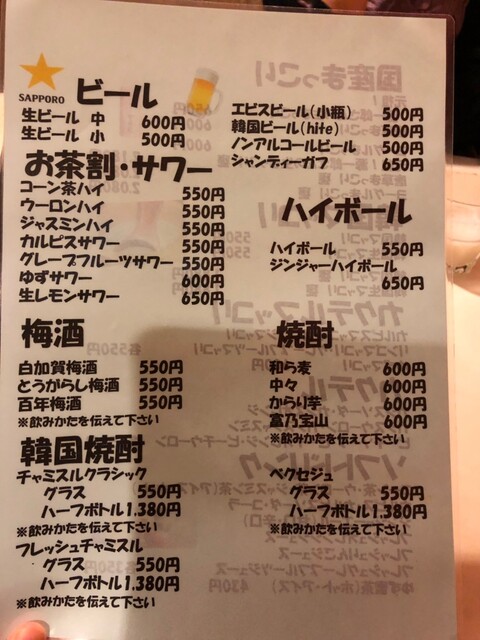 SAPPORO
ビール
生ビール 中 600円
生ビール 小 500円
エビスビール(小瓶) 500円
韓国ビール(hite) 500円
ノンアルコールビール 500円
シャンディーガフ 650円
お茶割・サワー
コーン茶ハイ 550円
ウーロンハイ 550円
ジャスミンハイ 550円
カルピスサワー 550円
グレープフルーツサワー 550円
ゆずサワー 600円
生レモンサワー 650円
ハイボール
ハイボール 550円
ジンジャーハイボール
650円
梅酒
白加賀梅酒 550円
とうがらし梅酒 550円
百年梅酒 550円
※飲みかたを伝えて下さい
焼酎
和ら麦 600円
中々 600円
からり芋 600円
富乃宝山 600円
※飲みかたを伝えて下さい
韓国焼酎
チャミスルクラシック
グラス 550円
ハーフボトル1.380円
※飲みかたを伝えて下さい
フレッシュチャミスル
グラス 550円
ハーフボトル1.380円
※飲みかたを伝えて下さい
ベクセジュ
グラス 550円
ハーフボトル1.380円
※飲みかたを伝えて下さい